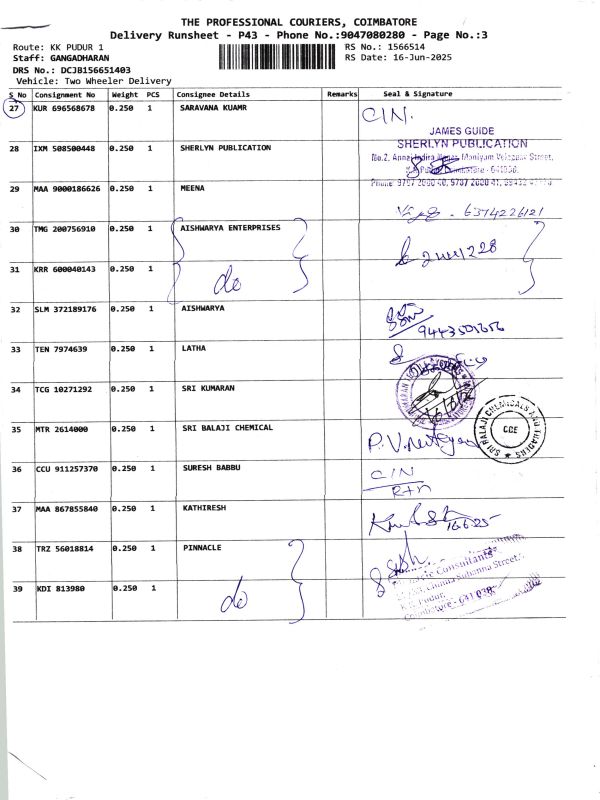 THE PROFESSIONAL COURIERS, COIMBATORE
Delivery Runsheet - P43 - Phone No.:9047080280 - Page No.:3
Route: KK PUDUR 1
RS No.: 1566514
Staff: GANGADHARAN
RS Date: 16-Jun-2025
DRS No.: DCJB156651403
Vehicle: Two Wheeler Delivery
S No Consignment No Weight PCS Consignee Details Remarks Seal & Signature
27 KUR 696568678 0.250 1 SARAVANA KUAMR CIN.
JAMES GUIDE
28 IXM 508500448 0.250 1 SHERLYN PUBLICATION SHERLYN PUBLICATION
29 MAA 9000186626 0.250 1 MEENA
6374226121
30 TMG 200756910 0.250 1 AISHWARYA ENTERPRISES
31 KRR 600040143 0.250 1 do
32 SLM 372189176 0.250 1 AISHWARYA
33 TEN 7974639 0.250 1 LATHA
34 TCG 10271292 0.250 1 SRI KUMARAN
SRI BALAJI CHEMICALS AND TRADERS
CBE
35 MTR 2614000 0.250 1 SRI BALAJI CHEMICAL
36 CCU 911257370 0.250 1 SURESH BABBU CIN
R+n
37 MAA 867855840 0.250 1 KATHIRESH
38 TRZ 56018814 0.250 1 PINNACLE
Consultants
39 KDI 813980 0.250 1 do
K.K. Pudur,
Coimbatore - 641 038